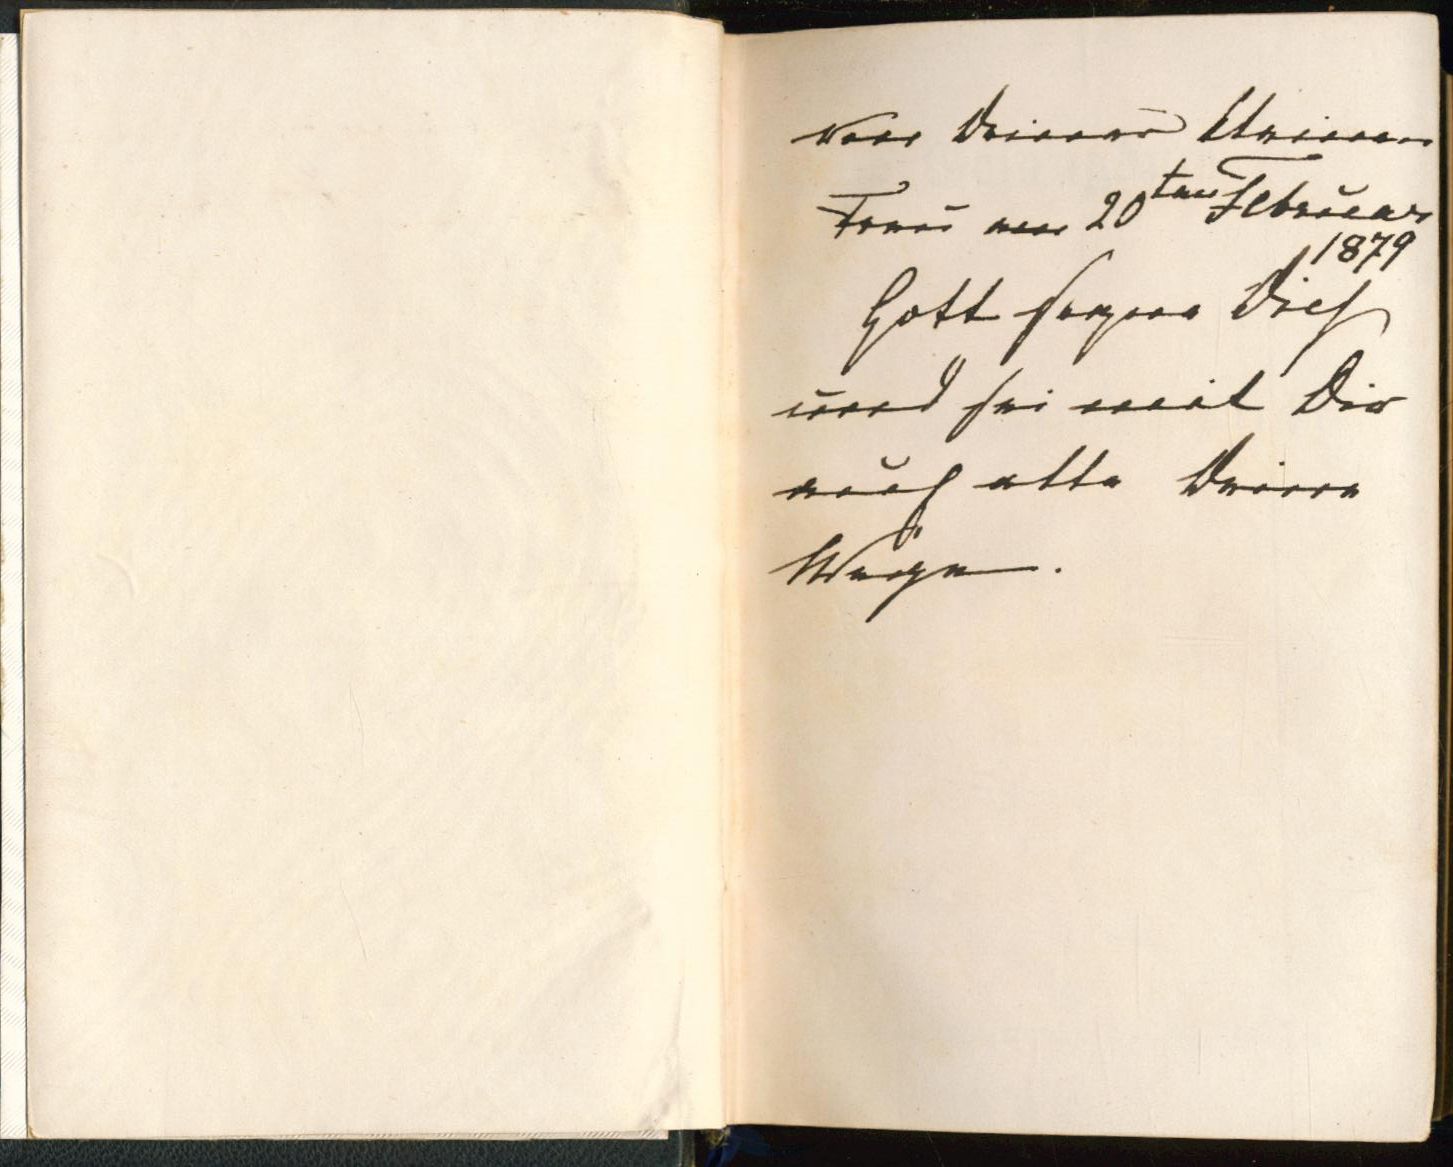 von Deiner kleinen
Frau am 20ten Februar
1879
Gott segne Dich
und sei mit Dir
auf alle Deine
Wege.